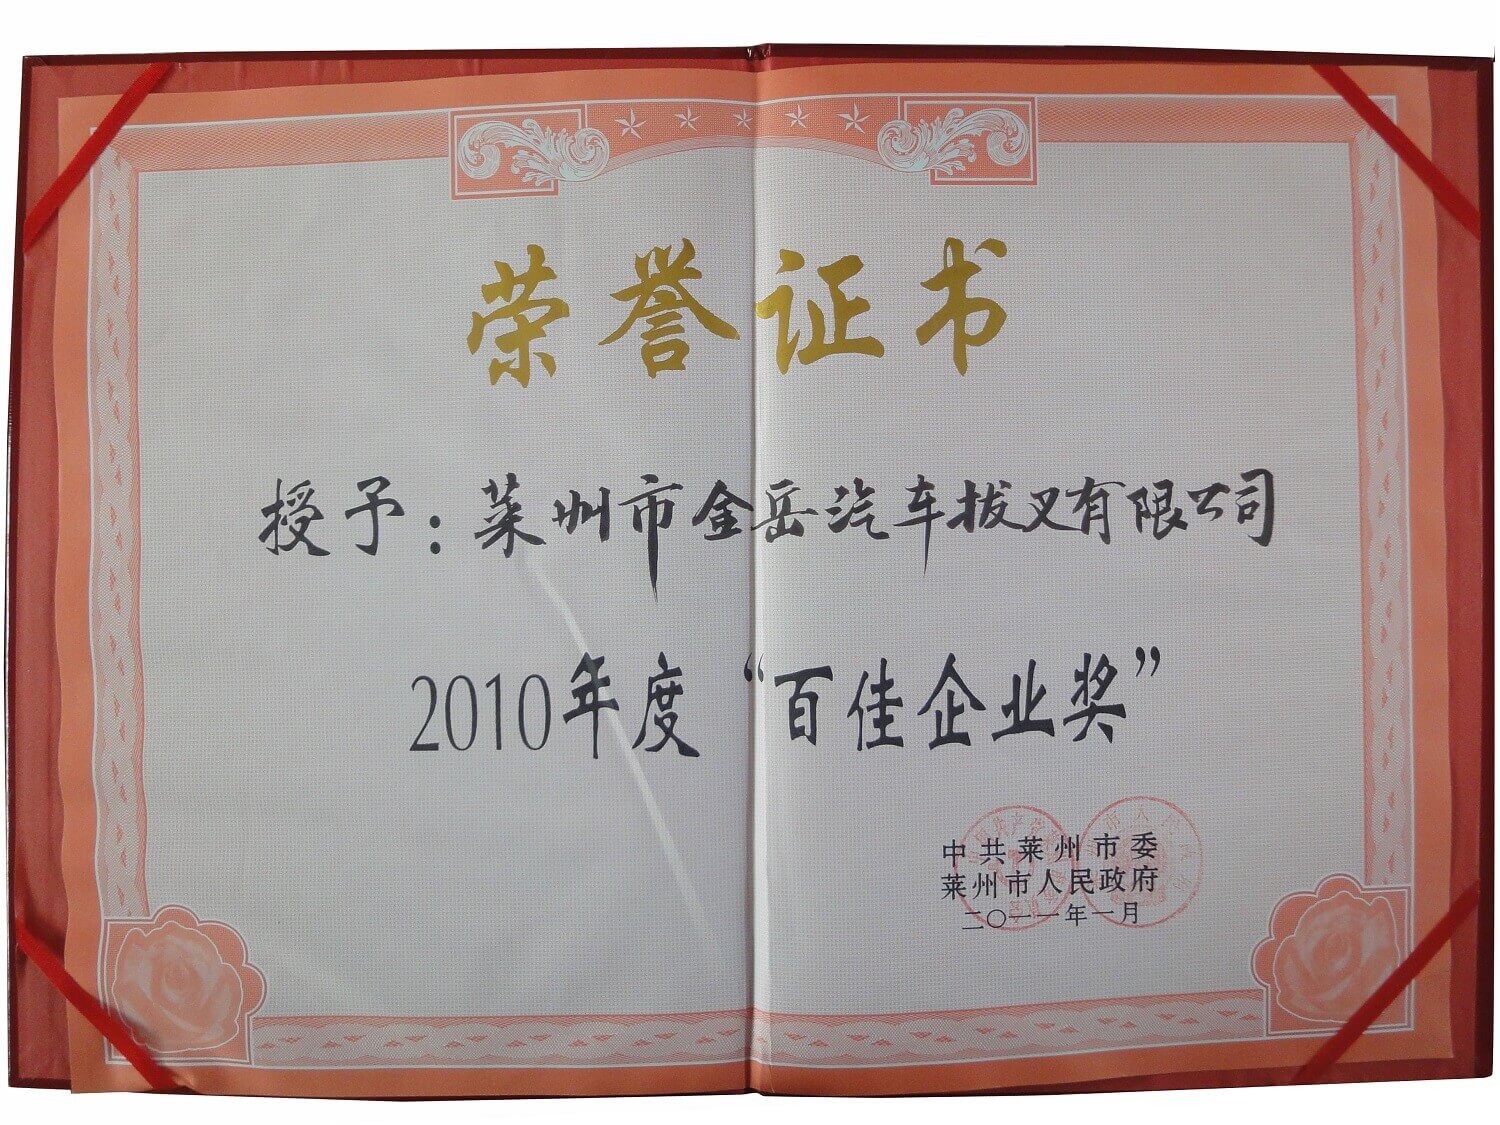 荣誉证书
授予：莱州市金岳汽车拔叉有限公司
2010年度“百佳企业奖”
中共莱州市委
莱州市人民政府
二〇一一年一月